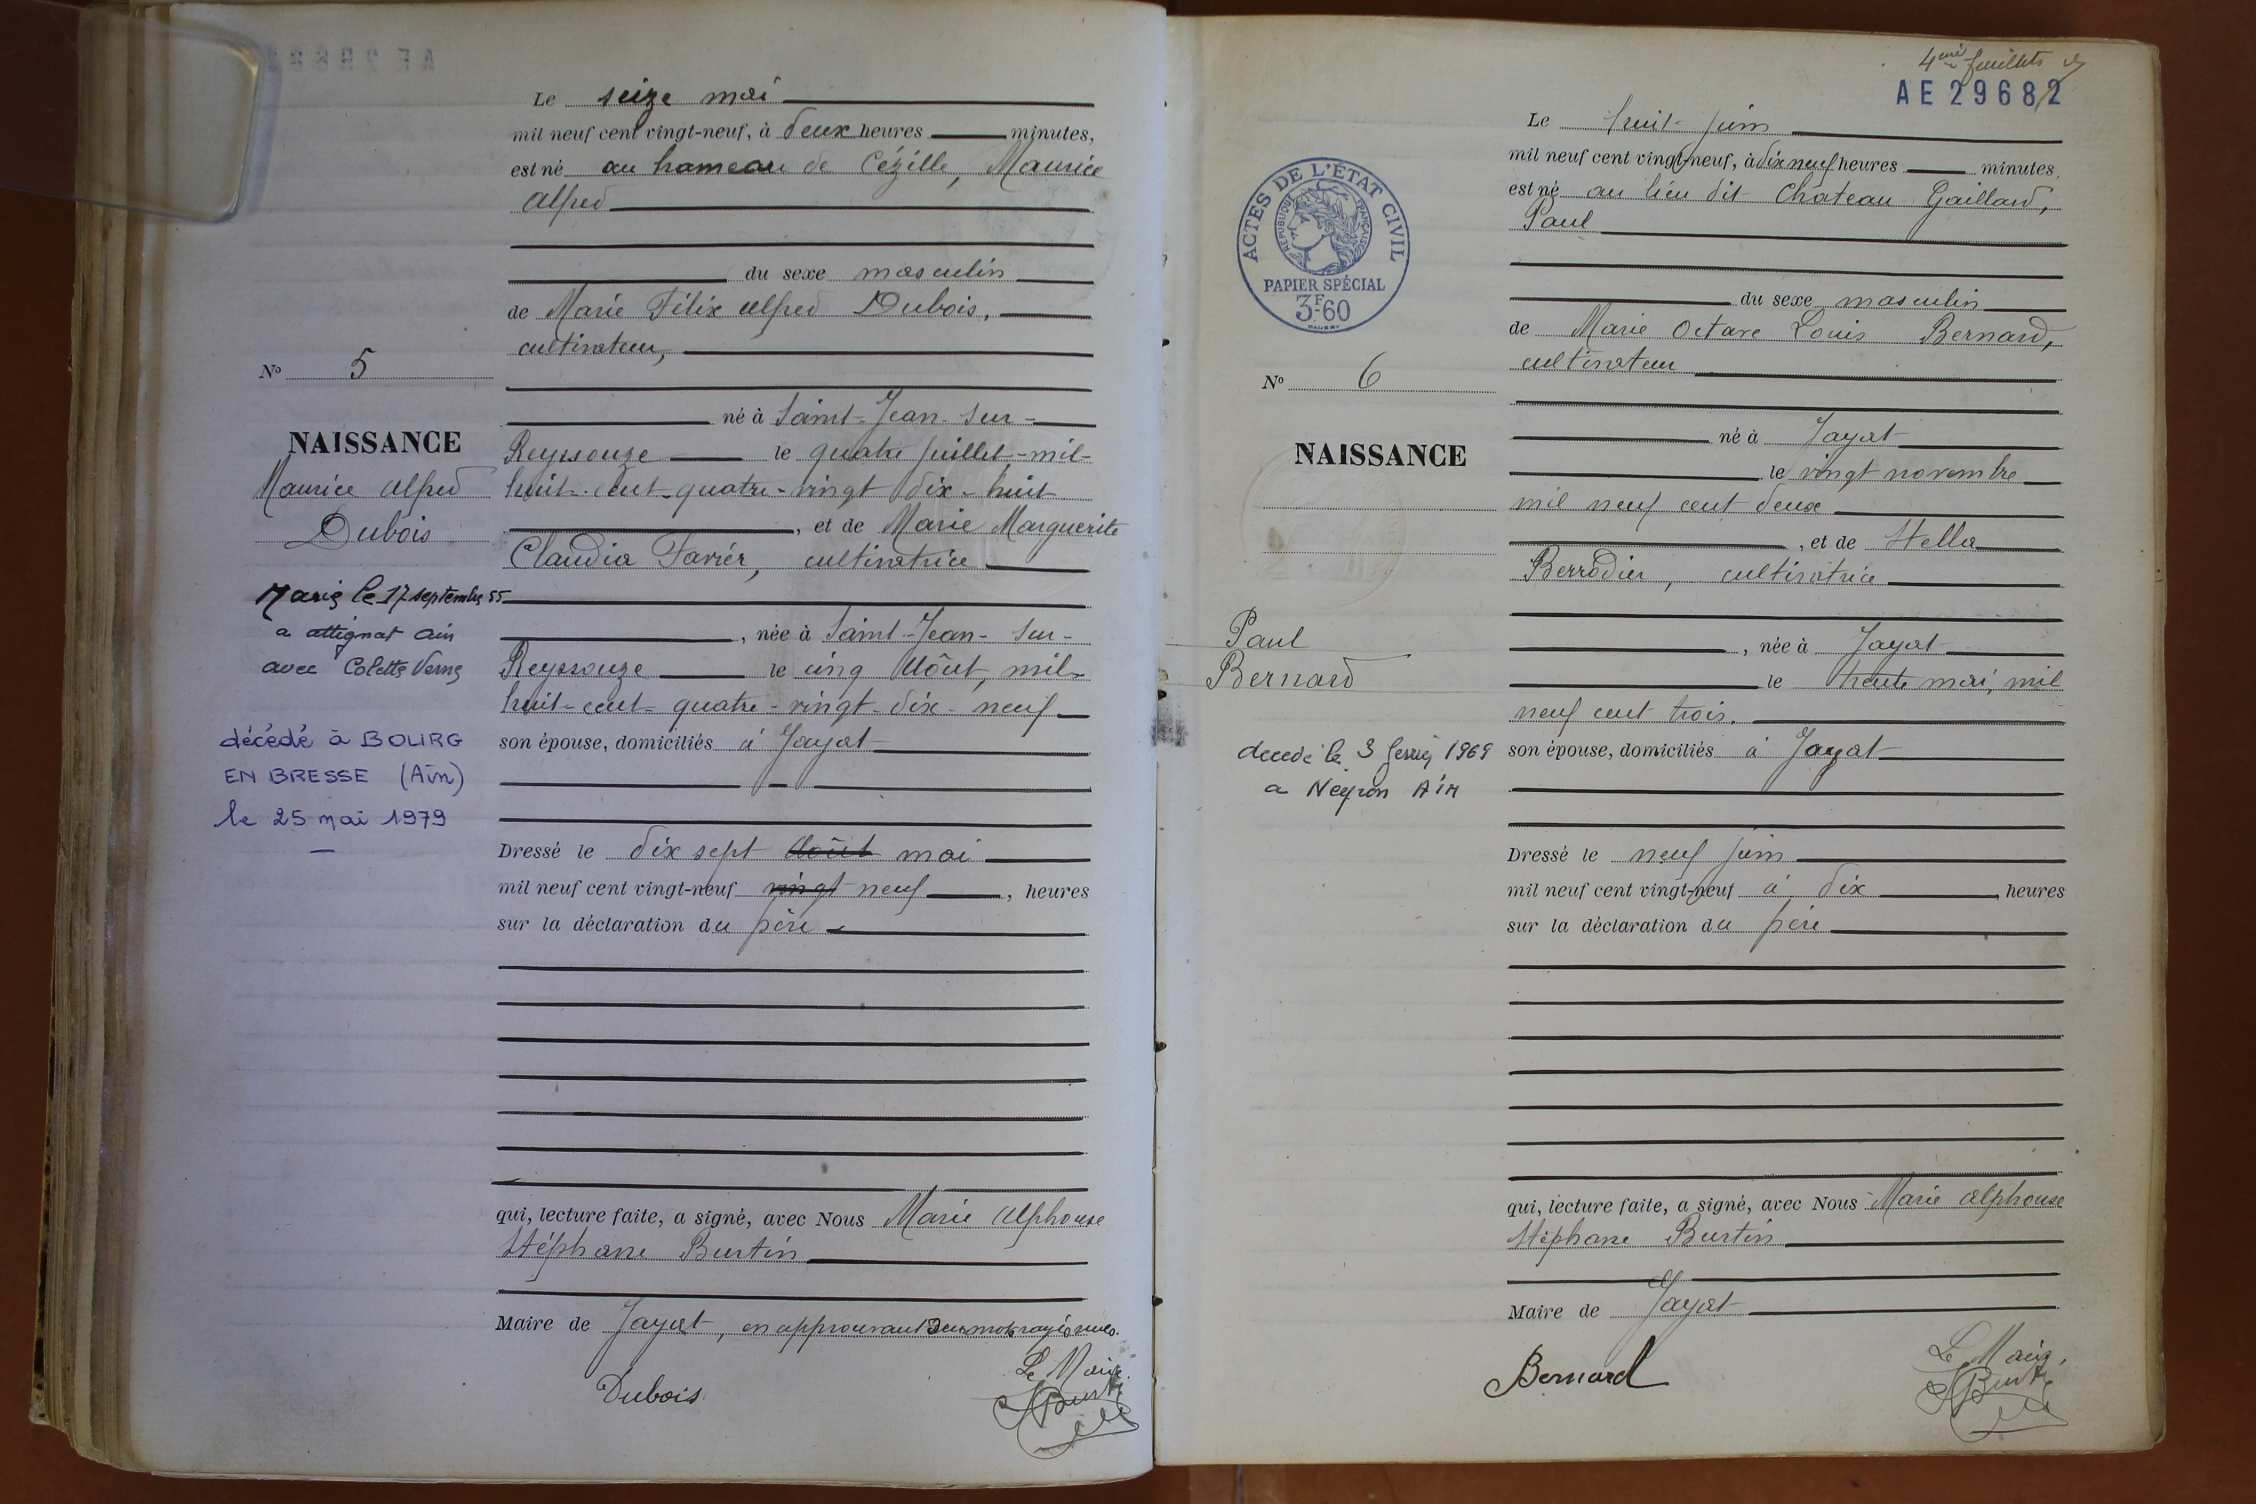 Le seize mai
mil neuf cent vingt-neuf, à deux heures minutes,
est né au hameau de Cézille, Maurice
Alfred
du sexe masculin
de Marie Félix Alfred Dubois,
cultivateur,
né à Saint-Jean-sur-
Reyssouze le quatre juillet-mil-
huit-cent-quatre-vingt dix-huit
, et de Marie Marguerite
Claudia Favier, cultivatrice
, née à Saint-Jean-sur-
Reyssouze le cinq Août, mil-
huit-cent-quatre-vingt-dix-neuf
son épouse, domiciliés à Jayat
Dressé le dix sept Août mai
mil neuf cent vingt-neuf vingt neuf, heures
sur la déclaration du père
qui, lecture faite, a signé, avec Nous Marie Alphonse
Stéphane Burtin
Maire de Jayat, en approuvant deux mots rayés nuls.
Dubois
Le Maire.
Burtin
No 5
NAISSANCE
Maurice Alfred
Dubois
Marié le 17 septembre 55
a attignat Ain
avec Colette Verne
décédé à BOURG
EN BRESSE (Ain)
le 25 mai 1979
4eme feuillets
AE 29682
Le huit juin
mil neuf cent vingt-neuf, à dix neuf heures minutes,
est né au lieu dit Château Gaillard,
Paul
du sexe masculin
de Marie Octave Louis Bernard,
cultivateur
né à Jayat
le vingt novembre
mil neuf cent deux
, et de Stella
Berrodier, cultivatrice
, née à Jayat
le trente mai, mil
neuf cent trois.
son épouse, domiciliés à Jayat
Dressé le neuf juin
mil neuf cent vingt-neuf à dix, heures
sur la déclaration du père
qui, lecture faite, a signé, avec Nous Marie Alphonse
Stéphane Burtin
Maire de Jayat
Bernard
Le Maire,
Burtin
ACTES DE L'ÉTAT CIVIL
RÉPUBLIQUE FRANÇAISE
PAPIER SPÉCIAL
3F60
No 6
NAISSANCE
Paul
Bernard
décédé le 3 février 1969
a Neyron Ain